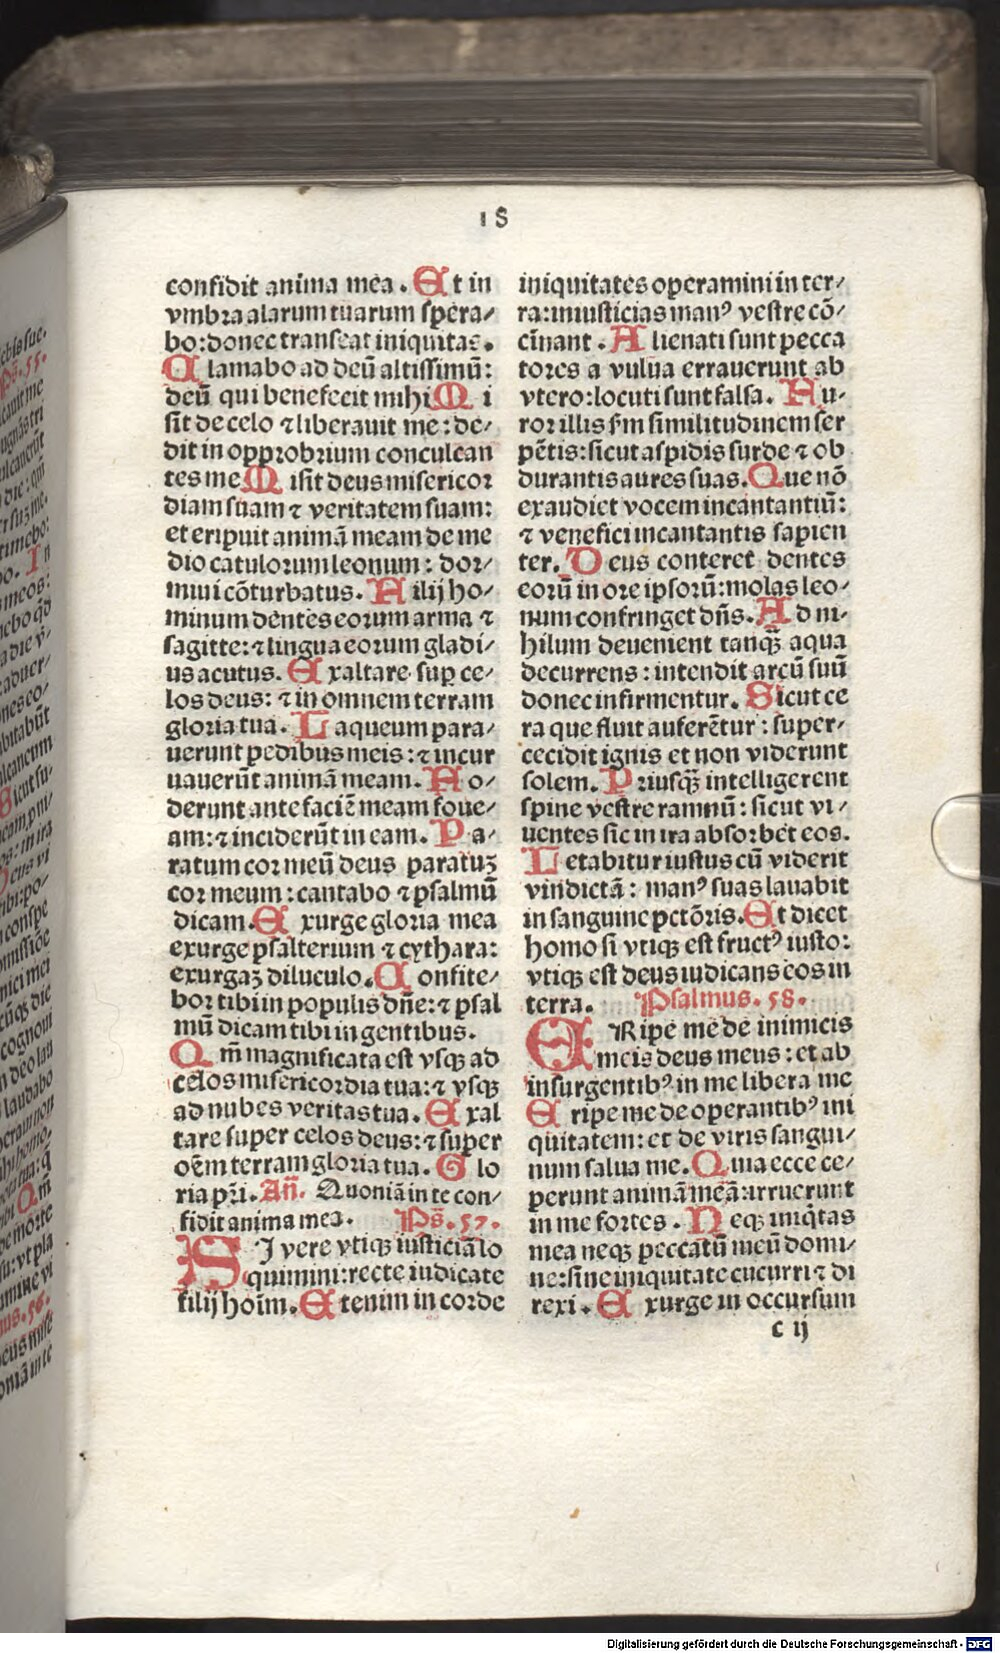 18
confidit anima mea. Et in
vmbra alarum tuarum spera-
bo: donec transeat iniquitas.
Clamabo ad deū altissimū:
deū qui benefecit mihi Mi
sit de celo ⁊ liberauit me: de-
dit in opprobrium conculcan
tes me Misit deus misericor
diam suam ⁊ veritatem suam:
et eripuit animā meam de me
dio catulorum leonum: dor-
miui cōturbatus. Filij ho-
minum dentes eorum arma ⁊
sagitte: ⁊ lingua eorum gladi-
us acutus. Exaltare suꝑ ce-
los deus: ⁊ in omnem terram
gloria tua. Laqueum para-
uerunt pedibus meis: ⁊ incur
uauerūt animā meam. Fo-
derunt ante faciē meam foue-
am: ⁊ inciderūt in eam. Pa-
ratum cor meū deus paratuꝫ
cor meum: cantabo ⁊ psalmū
dicam. Exurge gloria mea
exurge psalterium ⁊ cythara:
exurgaꝫ diluculo. Confite-
bor tibi in populis dn̄e: ⁊ psal
mū dicam tibi in gentibus.
Qm̄ magnificata est vsqꝫ ad
celos misericordia tua: ⁊ vsqꝫ
ad nubes veritas tua. Exal
tare super celos deus: ⁊ super
oēm terram gloria tua. Glo
ria pr̄i. Añ. Quoniā in te con-
fidit anima mea. Ps̄. 57.
SI vere vtiqꝫ iusticiā lo
quimini: recte iudicate
filij hoīm. Etenim in corde
iniquitates operamini in ter-
ra: iniusticias manꝰ vestre cō-
cīnant. Alienati sunt pecca
tores a vulua errauerunt ab
vtero: locuti sunt falsa. Fu-
ror illis s̄m similitudinem ser
pētis: sicut aspidis surde ⁊ ob
durantis aures suas. Que nō
exaudiet vocem incantantiū:
⁊ venefici incantantis sapien
ter. Deus conteret dentes
eorū in ore ipsorū: molas leo-
num confringet dn̄s. Ad ni-
hilum deuenient tanqꝫ̄ aqua
decurrens: intendit arcū suū
donec infirmentur. Sicut ce
ra que fluit auferētur: super-
cecidit ignis et non viderunt
solem. Priusqꝫ̄ intelligerent
spine vestre ramnū: sicut vi-
uentes sic in ira absorbet eos.
Letabitur iustus cū viderit
vindictā: manꝰ suas lauabit
in sanguine pctōris. Et dicet
homo si vtiqꝫ est fructꝰ iusto:
vtiqꝫ est deus iudicans eos in
terra. Psalmus. 58.
ERipe me de inimicis
meis deus meus: et ab
insurgentibꝰ in me libera me
Eripe me de operantibꝰ ini
quitatem: et de viris sangui-
num salua me. Quia ecce ce-
perunt animā meā: irruerunt
in me fortes. Neqꝫ iniq̄tas
mea neqꝫ peccatū meū domi-
ne: sine iniquitate cucurri ⁊ di
rexi. Exurge in occursum
c ij
Digitalisierung gefördert durch die Deutsche Forschungsgemeinschaft - DFG